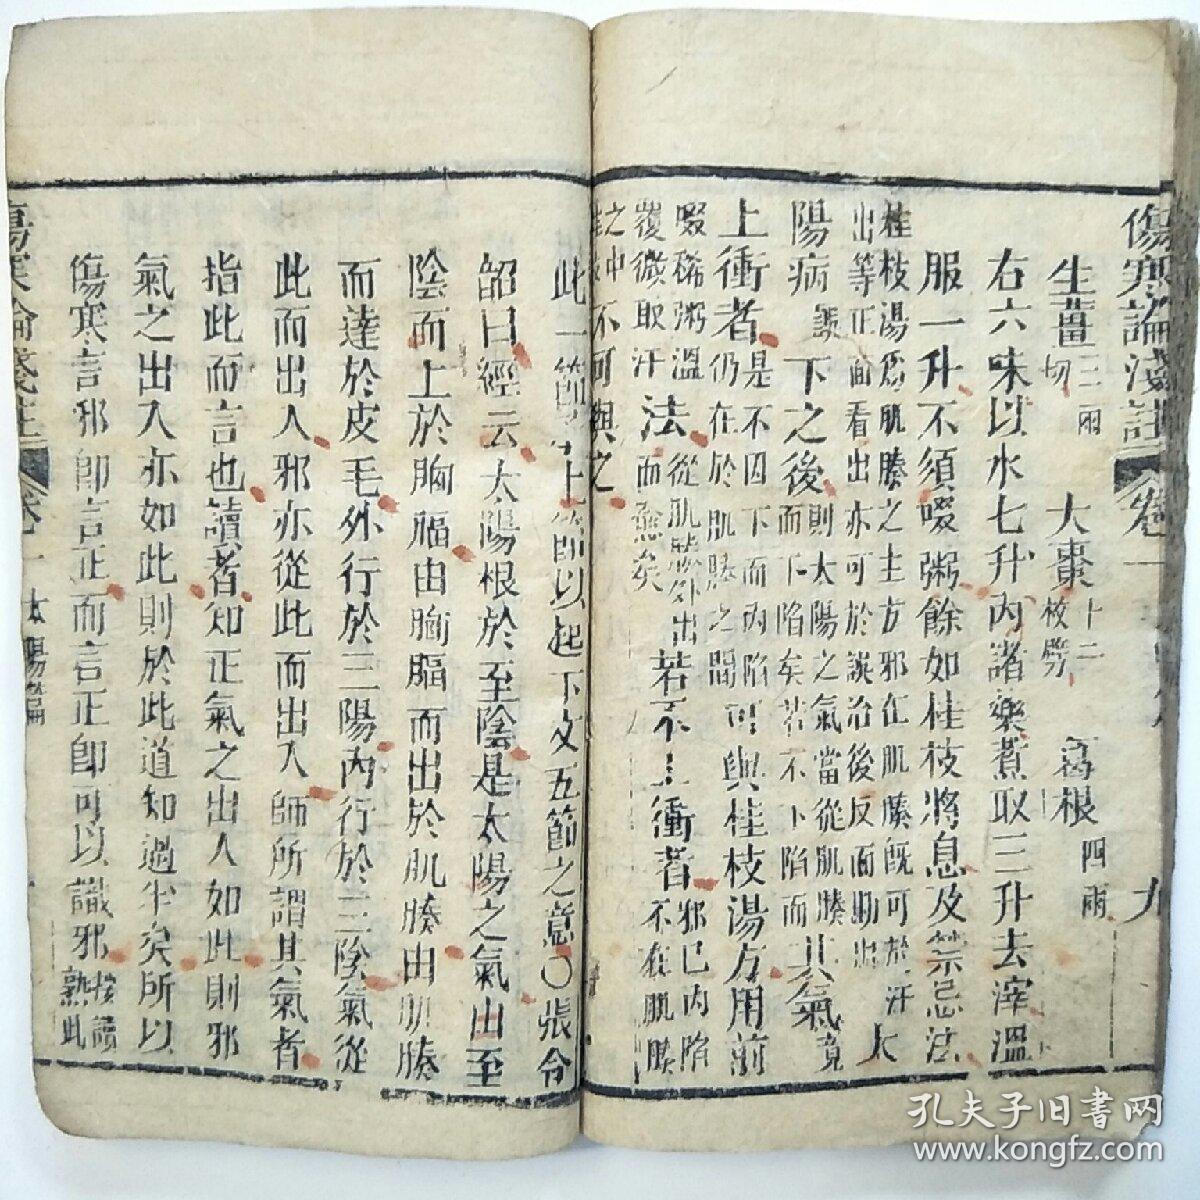 傷寒論淺註 卷一 九
生薑三兩切 大棗十二枚劈 葛根四兩
右六味以水七升內諸藥煮取三升去滓溫
服一升不須啜粥餘如桂枝將息及禁忌法
桂枝湯爲肌腠之主方邪在肌腠既可於汗
出等正面看出亦可於誤治後反面勘出 太
陽病誤下之後而下陷矣若不下陷而則太陽之氣當從肌腠其氣竟
上衝者是不因下而內陷仍在於肌腠之間可與桂枝湯方用前
啜稀粥溫覆微取汗法從肌腠外出而愈矣若不上衝者邪已內陷不在肌腠
之中桂枝不可與之
此一節承上節以起下文五節之意○張令
韶曰經云太陽根於至陰是太陽之氣由至
陰而上於胸膈由胸膈而出於肌腠由肌腠
而達於皮毛外行於三陽內行於三陰氣從
此而出入邪亦從此而出入師所謂其氣者
指此而言也讀者知正氣之出入如此則邪
氣之出入亦如此則於此道知過半矣所以
傷寒言邪即言正而言正即可以識邪按熟讀此
傷寒論淺註 卷一 太陽篇
孔夫子旧书网
www.kongfz.com